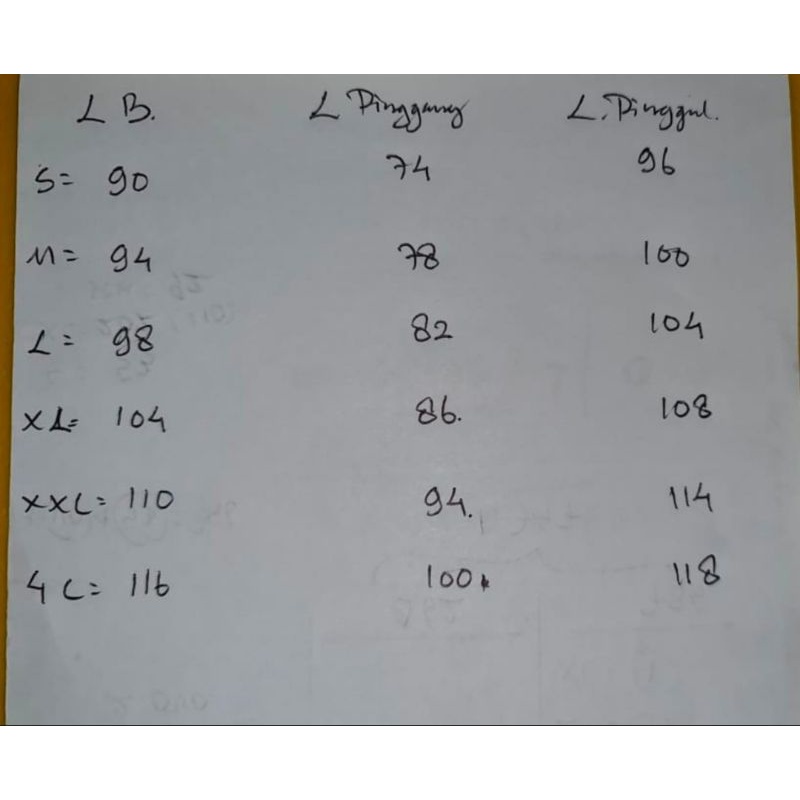 L B. L Pinggang L. Pinggul.
S= 90 74 96
M= 94 78 100
L= 98 82 104
XL= 104 86. 108
XXL= 110 94. 114
4L= 116 100. 118